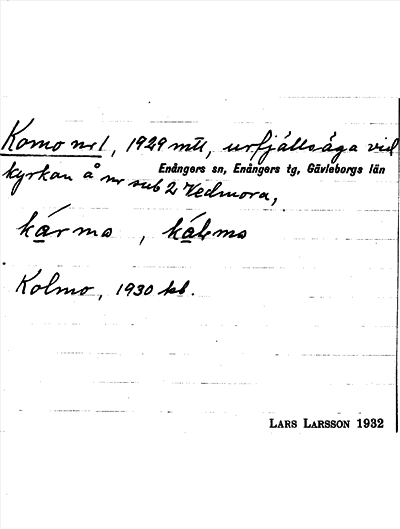 Komo nr 1, 1929 mtl, urfjällsäga vid
Enångers sn, Enångers tg, Gävleborgs län
kyrkan å nr sub 2 Vedmora,
kárma, kálma
Kolmo, 1930 kb.
LARS LARSSON 1932